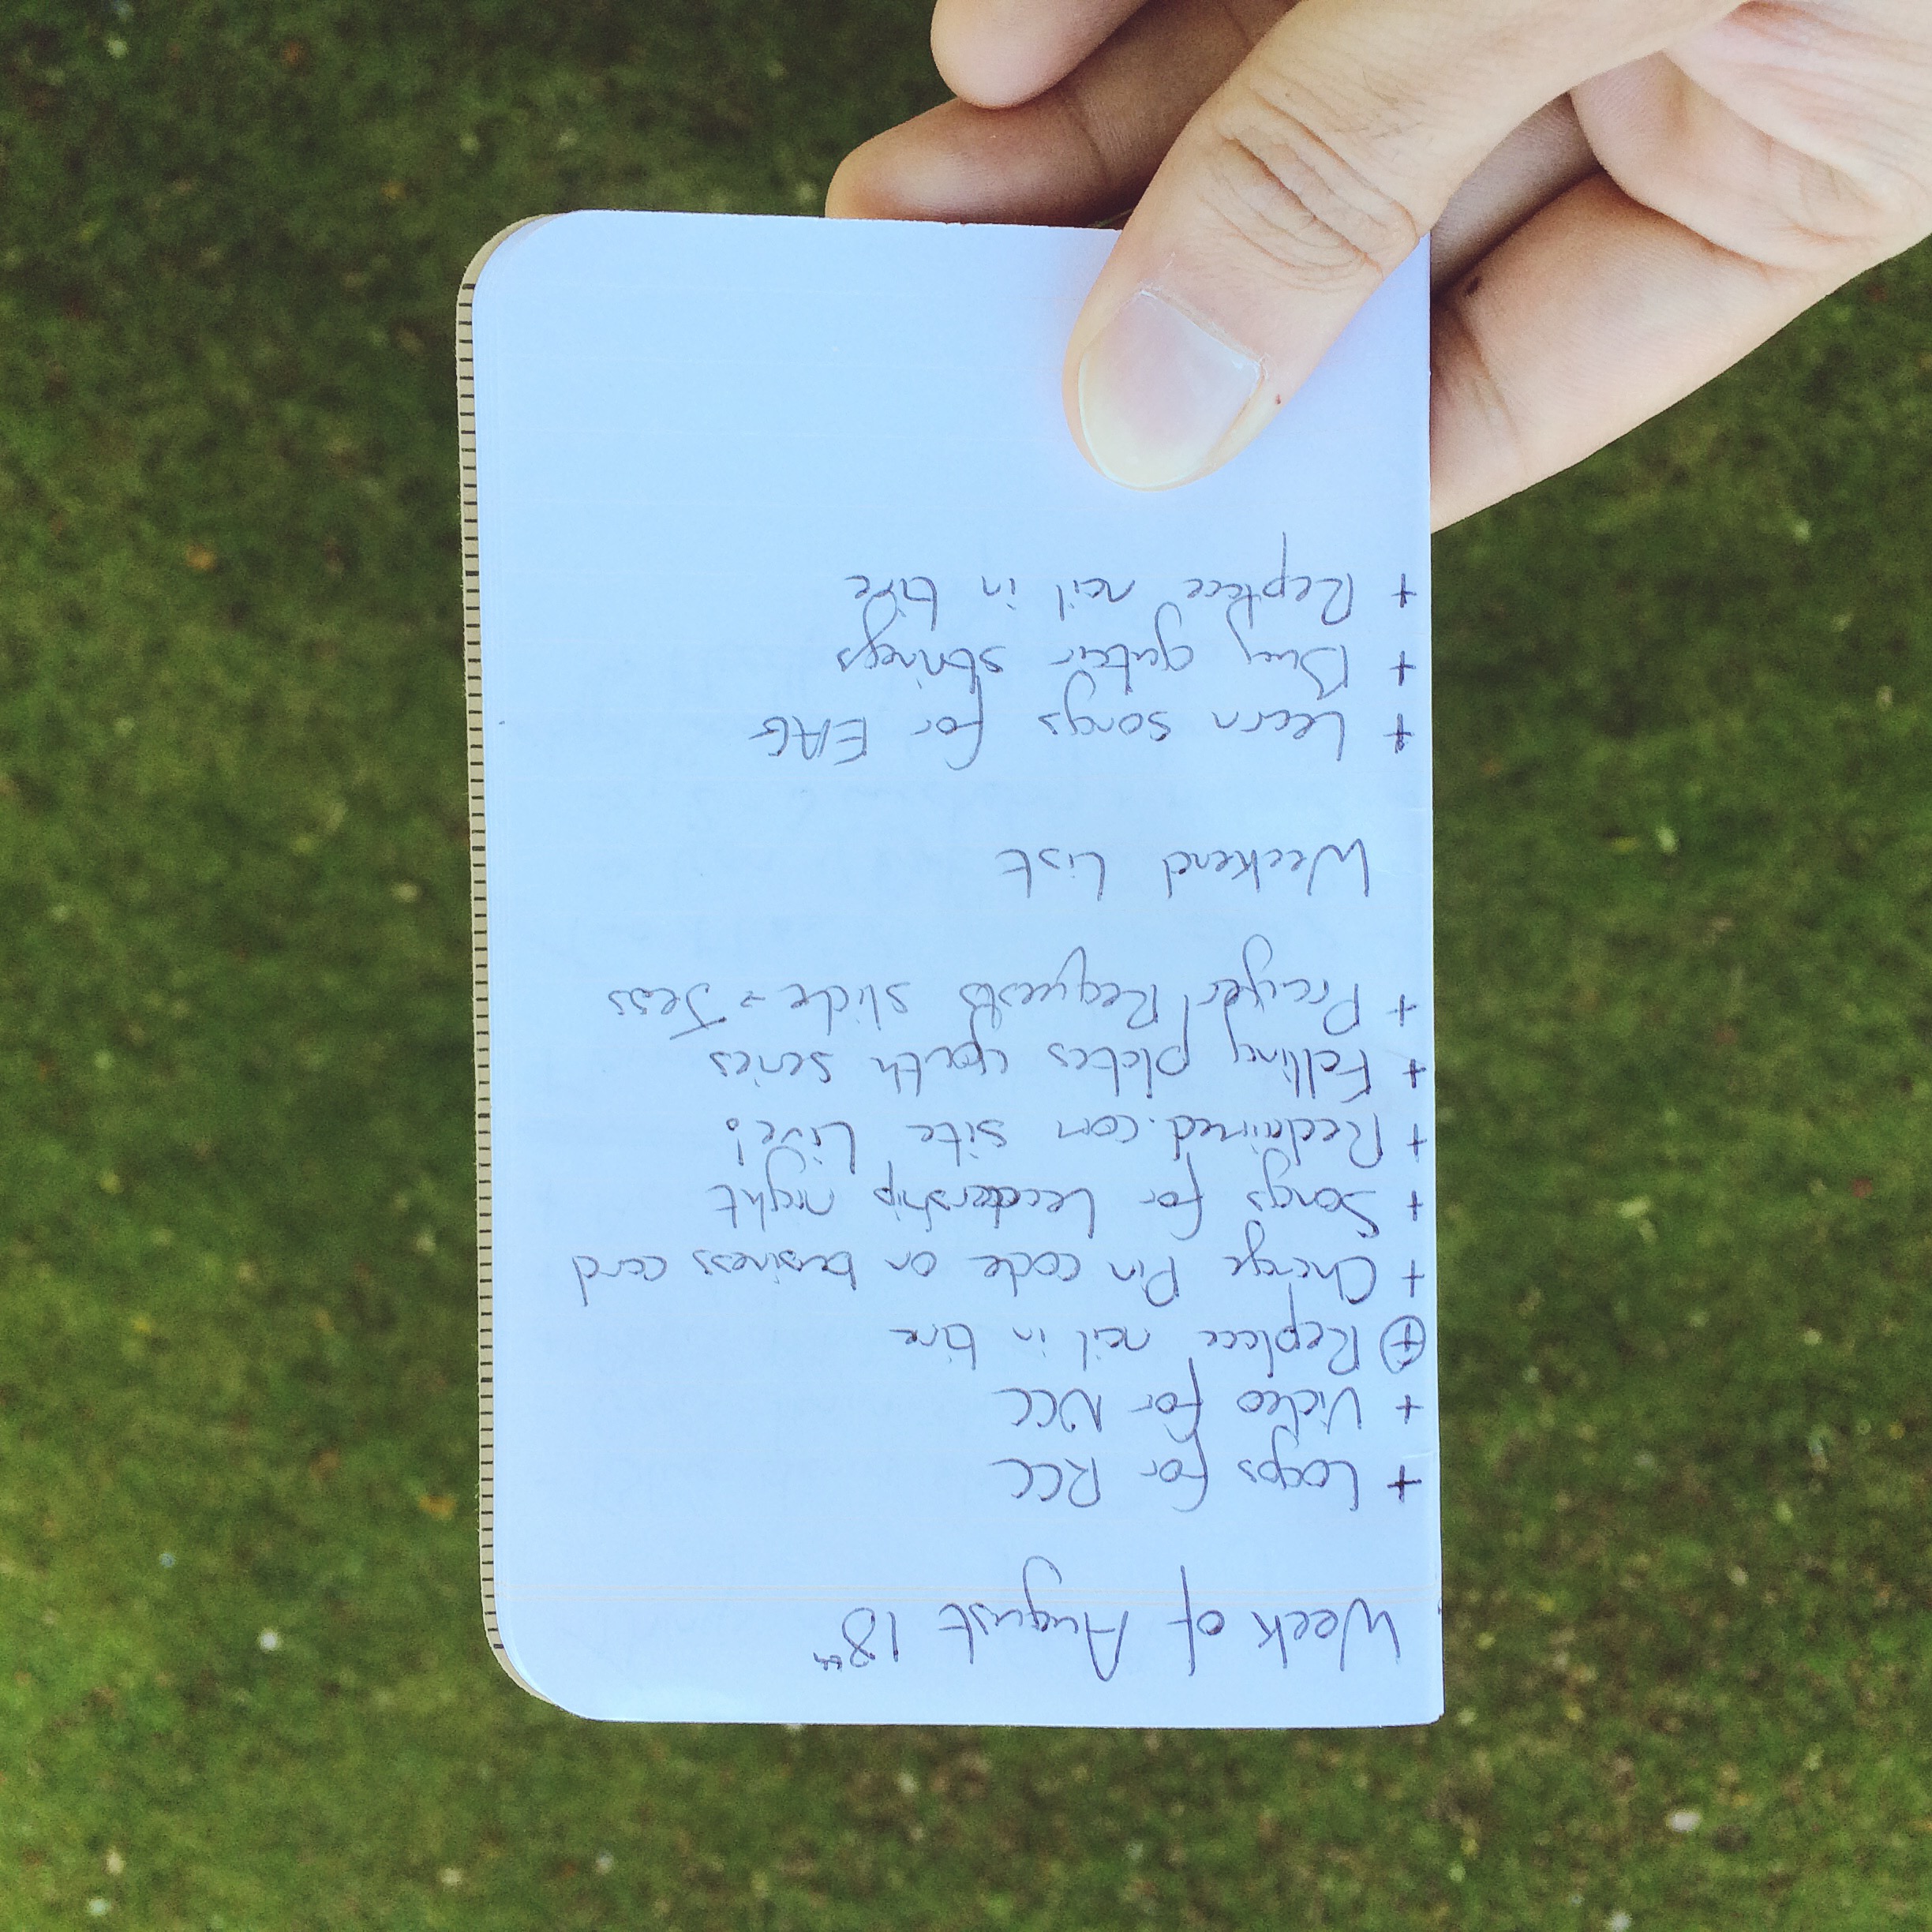 Week of August 18th
+ Loops for RCC
+ Video for NCC
+ Replace nail in tire
+ Change Pin code on business card
+ Songs for Leadership night
+ Redmined.com site Live!
+ Falling plates youth series
+ Prayer Requests slide = Jess
Weekend List
+ Learn songs for EAG
+ Buy guitar strings
+ Replace nail in tire